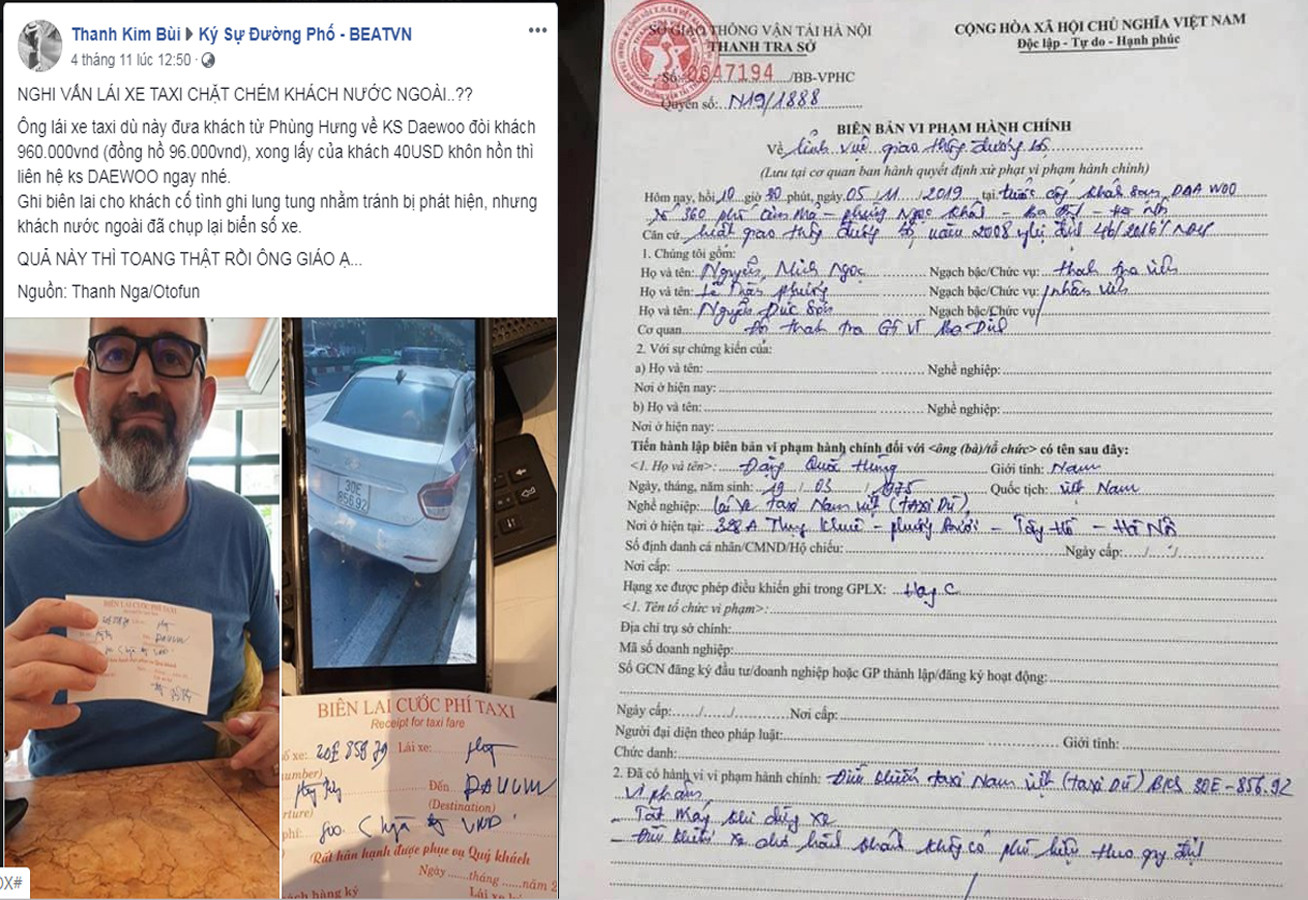 Thanh Kim Bùi ▶ Ký Sự Đường Phố - BEATVN
4 tháng 11 lúc 12:50 ·
NGHI VẤN LÁI XE TAXI CHẶT CHÉM KHÁCH NƯỚC NGOÀI..??
Ông lái xe taxi dù này đưa khách từ Phùng Hưng về KS Daewoo đòi khách
960.000vnd (đồng hồ 96.000vnd), xong lấy của khách 40USD khôn hồn thì
liên hệ ks DAEWOO ngay nhé.
Ghi biên lai cho khách cố tình ghi lung tung nhằm tránh bị phát hiện, nhưng
khách nước ngoài đã chụp lại biển số xe.
QUẢ NÀY THÌ TOANG THẬT RỒI ÔNG GIÁO Ạ...
Nguồn: Thanh Nga/Otofun
BIÊN LAI CƯỚC PHÍ TAXI
30E
856.92
BIÊN LAI CƯỚC PHÍ TAXI
Receipt for taxi fare
Lái xe:
Đến
(Destination)
VND
Rất hân hạnh được phục vụ Quý khách
Ngày......tháng......năm 2
DX#
SỞ GIAO THÔNG VẬN TẢI HÀ NỘI
THANH TRA SỞ
Số: 0047194 /BB-VPHC
Quyển số: N19/1888
CỘNG HÒA XÃ HỘI CHỦ NGHĨA VIỆT NAM
Độc lập - Tự do - Hạnh phúc
BIÊN BẢN VI PHẠM HÀNH CHÍNH
Về lĩnh vực giao thông đường bộ
(Lưu tại cơ quan ban hành quyết định xử phạt vi phạm hành chính)
Hôm nay, hồi 10 giờ 30 phút, ngày 05/11/2019 tại trước cổng khách sạn DAAWOO
Số 360 phố - Ba Đình - Hà Nội
Căn cứ luật giao thông đường bộ năm 2008 nghị định 46/2016/NĐCP
1. Chúng tôi gồm:
Họ và tên: Nguyễn Minh Ngọc Ngạch bậc/Chức vụ: thanh tra viên
Họ và tên: Ngạch bậc/Chức vụ: nhân viên
Họ và tên: Nguyễn Đức Sơn Ngạch bậc/Chức vụ
Cơ quan Đội thanh tra GTVT Ba Đình
2. Với sự chứng kiến của:
a) Họ và tên: Nghề nghiệp:
Nơi ở hiện nay:
b) Họ và tên: Nghề nghiệp:
Nơi ở hiện nay:
Tiến hành lập biên bản vi phạm hành chính đối với <ông (bà)/tổ chức> có tên sau đây:
<1. Họ và tên>: Đặng Quốc Hùng Giới tính: Nam
Ngày, tháng, năm sinh: 19/03/1975 Quốc tịch: Việt Nam
Nghề nghiệp: lái xe taxi Nam Việt (TAXI DÙ)
Nơi ở hiện tại: 328A Thụy Khuê - phường Bưởi - Tây Hồ - Hà Nội
Số định danh cá nhân/CMND/Hộ chiếu: Ngày cấp:
Nơi cấp:
Hạng xe được phép điều khiển ghi trong GPLX: Hạng C
<1. Tên tổ chức vi phạm>:
Địa chỉ trụ sở chính:
Mã số doanh nghiệp:
Số GCN đăng ký đầu tư/doanh nghiệp hoặc GP thành lập/đăng ký hoạt động:
Ngày cấp:....../....../...... Nơi cấp:
Người đại diện theo pháp luật: Giới tính:
Chức danh:
2. Đã có hành vi vi phạm hành chính: Điều khiển taxi Nam Việt (taxi Dù) BKS 30E-856.92
vi phạm
- Tắt máy khi dừng xe
- Điều khiển xe chở hành khách không có phù hiệu theo quy định